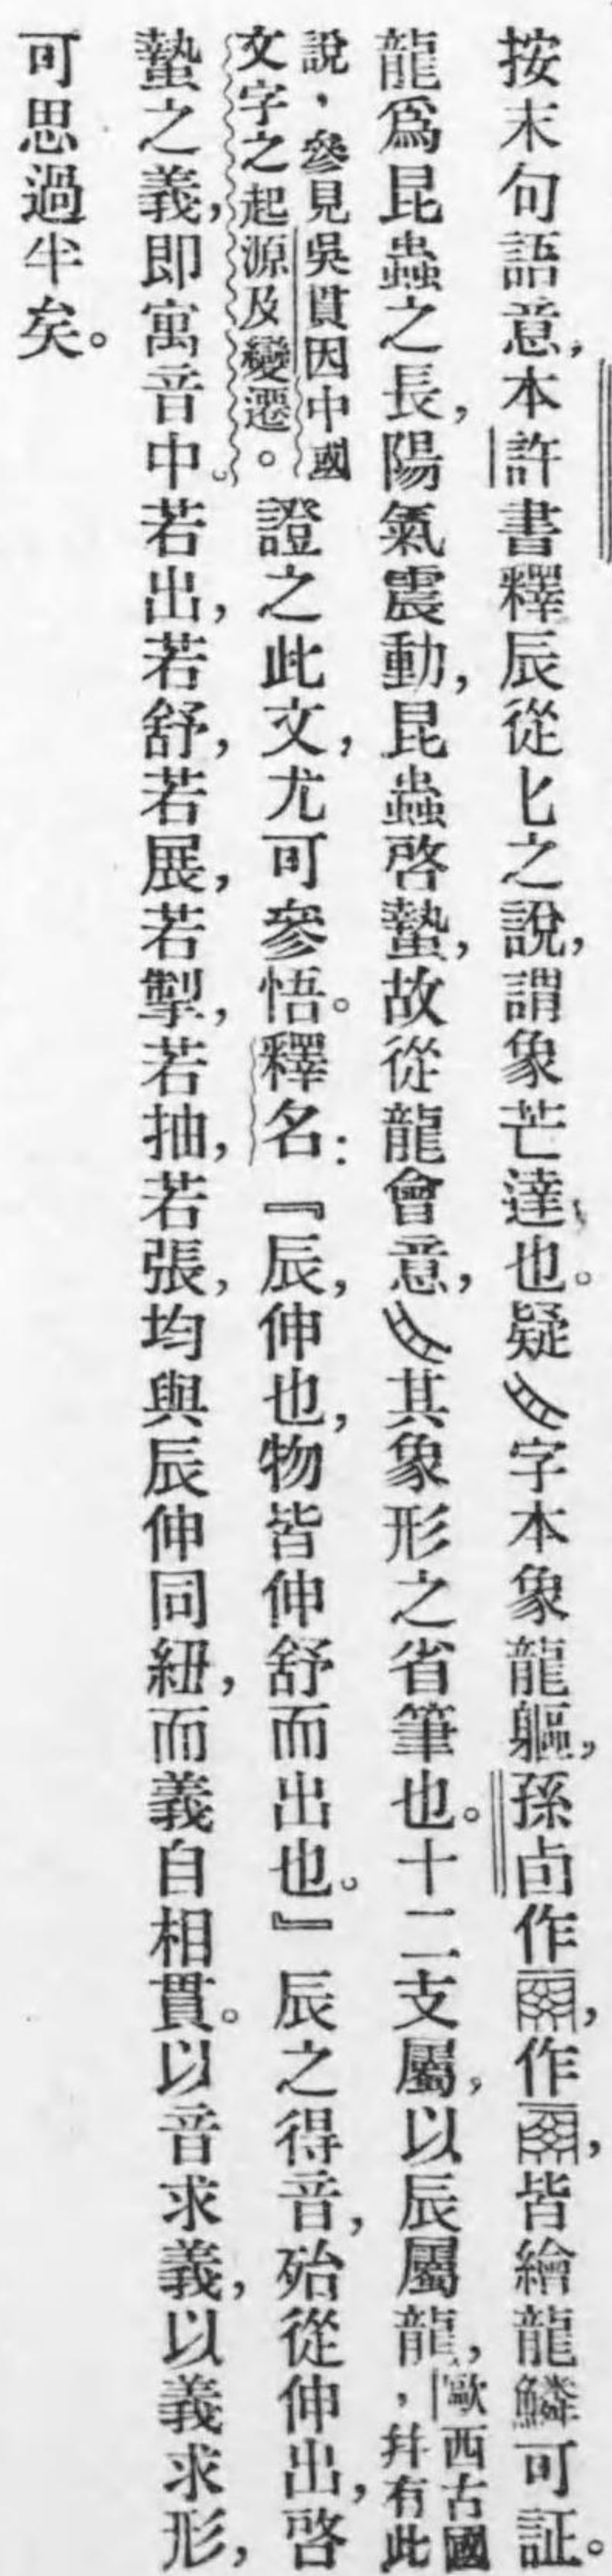 按末句語意，本許書釋辰從匕之說，謂象芒達也。疑字本象龍軀，孫卣作，作，皆繪龍鱗可証。
龍爲昆蟲之長，陽氣震動，昆蟲啓蟄，故從龍會意，其象形之省筆也。十二支屬，以辰屬龍，歐西古國，幷有此
說，參見吳貫因中國文字之起源及變遷。證之此文，尤可參悟。釋名：『辰，伸也，物皆伸舒而出也。』辰之得音，殆從伸出，啓
蟄之義，即寓音中。若出，若舒，若展，若掣，若抽，若張，均與辰伸同紐，而義自相貫。以音求義，以義求形，
可思過半矣。